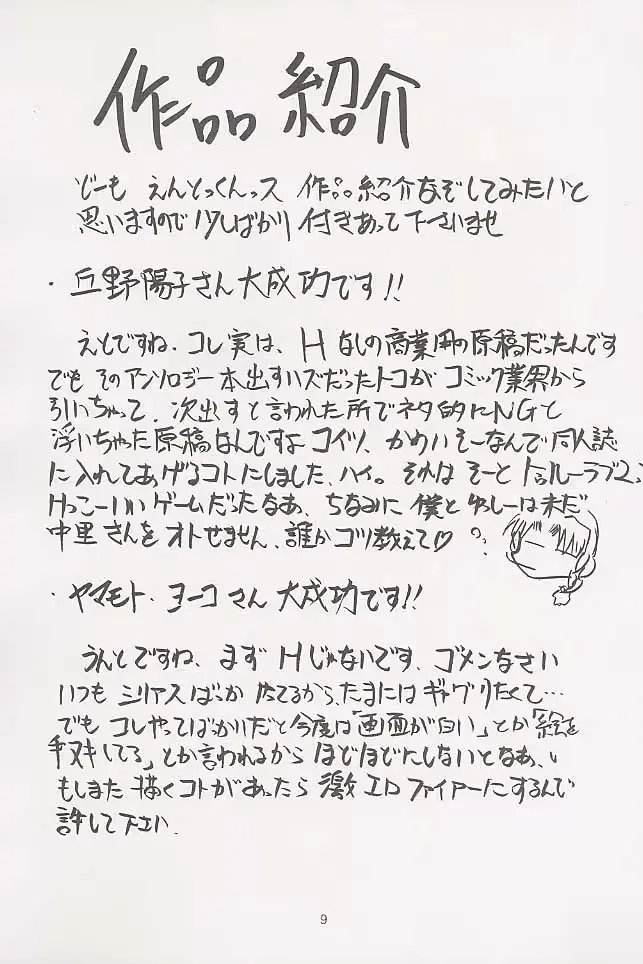 作品紹介
どーも えんどっくんっス 作品紹介なぞしてみたいと
思いますので 少しばかり 付きあって 下さいませ
・丘野陽子さん大成功です!!
えとですね、コレ実は、Hなしの商業用の原稿だったんです
でも そのアンソロジー本出すハズだったトコが コミック業界から
引いちゃって、次出すと言われた所でネタ的にNGと
浮いちゃった原稿なんですよ コイツ、かわいそーなんで同人誌
に入れてあげるコトにしました、ハイ。それはそーと トゥルーラブ2、
けっこーいいゲームだったなあ、ちなみに 僕と ゆしーは未だ
中里さんを オトせません、誰かコツ教えて♡
・ヤマモト・ヨーコさん 大成功です!!
うんとですね、まず Hじゃないです、ゴメンなさい
いつも シリアスばっか たてるから、たまにはギャグりたくて…
でも コレやってばっかいだと今度は「画面が白い」とか「絵を
手ヌキしてる」とか言われるから ほどほどにしないとなあ、い
もしまた 描くコトがあったら 激エロファイアーにするんで
許して下さい、
9